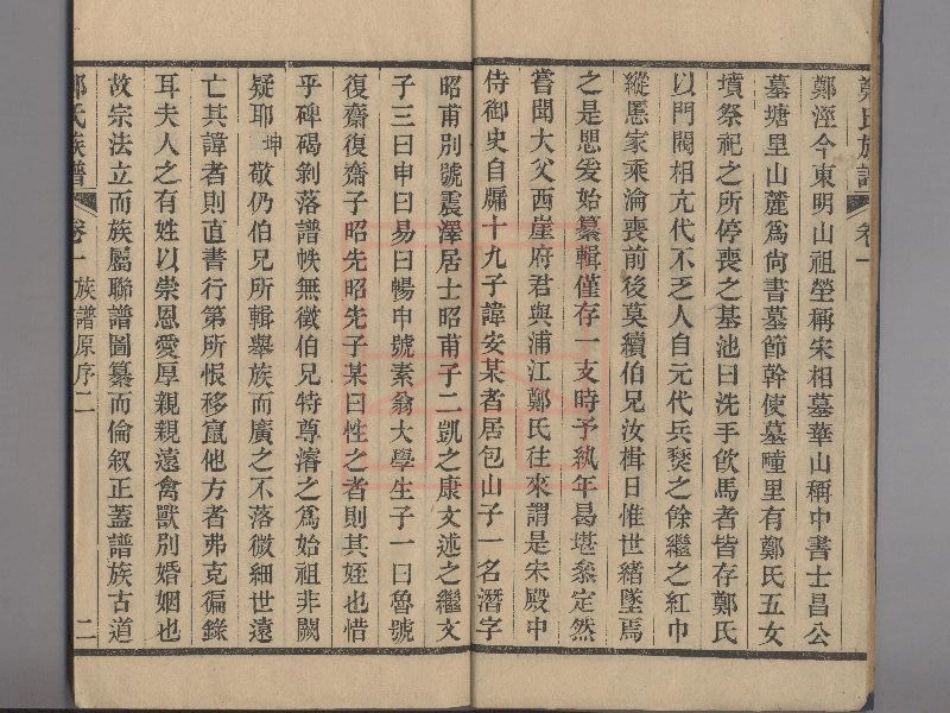 鄭氏族譜 卷一
鄭涇今東明山祖塋稱宋相墓華山稱中書士昌公
墓塘里山麓爲尙書墓節幹使墓疃里有鄭氏五女
墳祭祀之所停喪之基池曰洗手飮馬者皆存鄭氏
以門閥相亢代不乏人自元代兵燹之餘繼之紅巾
縱慝家乘淪喪前後莫續伯兄汝楫日惟世緖墜焉
之是思爰始纂輯僅存一支時予紈年曷堪叅定然
嘗聞大父西崖府君與浦江鄭氏往來謂是宋殿中
侍御史自牖十九子諱安某者居包山子一名潛字
昭甫別號震澤居士昭甫子二凱之康文述之繼文
子三曰申曰易曰暢申號素翁大學生子一曰魯號
復齋復齋子昭先昭先子某曰性之者則其姪也惜
乎碑碣剝落譜帙無徵伯兄特尊濬之爲始祖非闕
疑耶坤敬仍伯兄所輯舉族而廣之不落微細世遠
亡其諱者則直書行第所恨移竄他方者弗克徧錄
耳夫人之有姓以崇恩愛厚親親遠禽獸別婚姻也
故宗法立而族屬聯譜圖纂而倫叙正蓋譜族古道
鄭氏族譜 卷一 族譜原序二 二